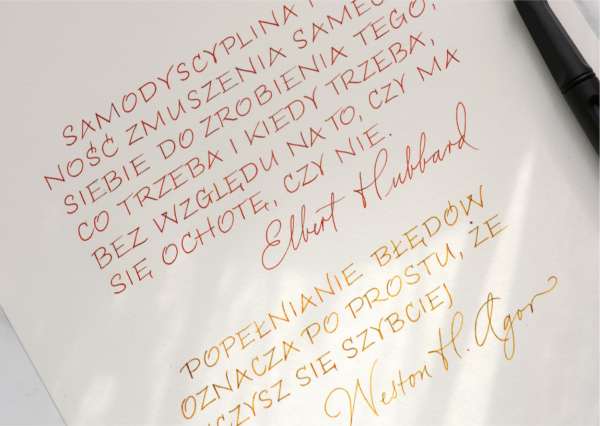 SAMODYSCYPLINA
NOŚĆ ZMUSZENIA SAMEGO
SIEBIE DO ZROBIENIA TEGO,
CO TRZEBA I KIEDY TRZEBA,
BEZ WZGLĘDU NA TO, CZY MA
SIĘ OCHOTĘ, CZY NIE.
Elbert Hubbard
POPEŁNIANIE BŁĘDÓW
OZNACZA PO PROSTU, ŻE
UCZYSZ SIĘ SZYBCIEJ
Weston H. Agor